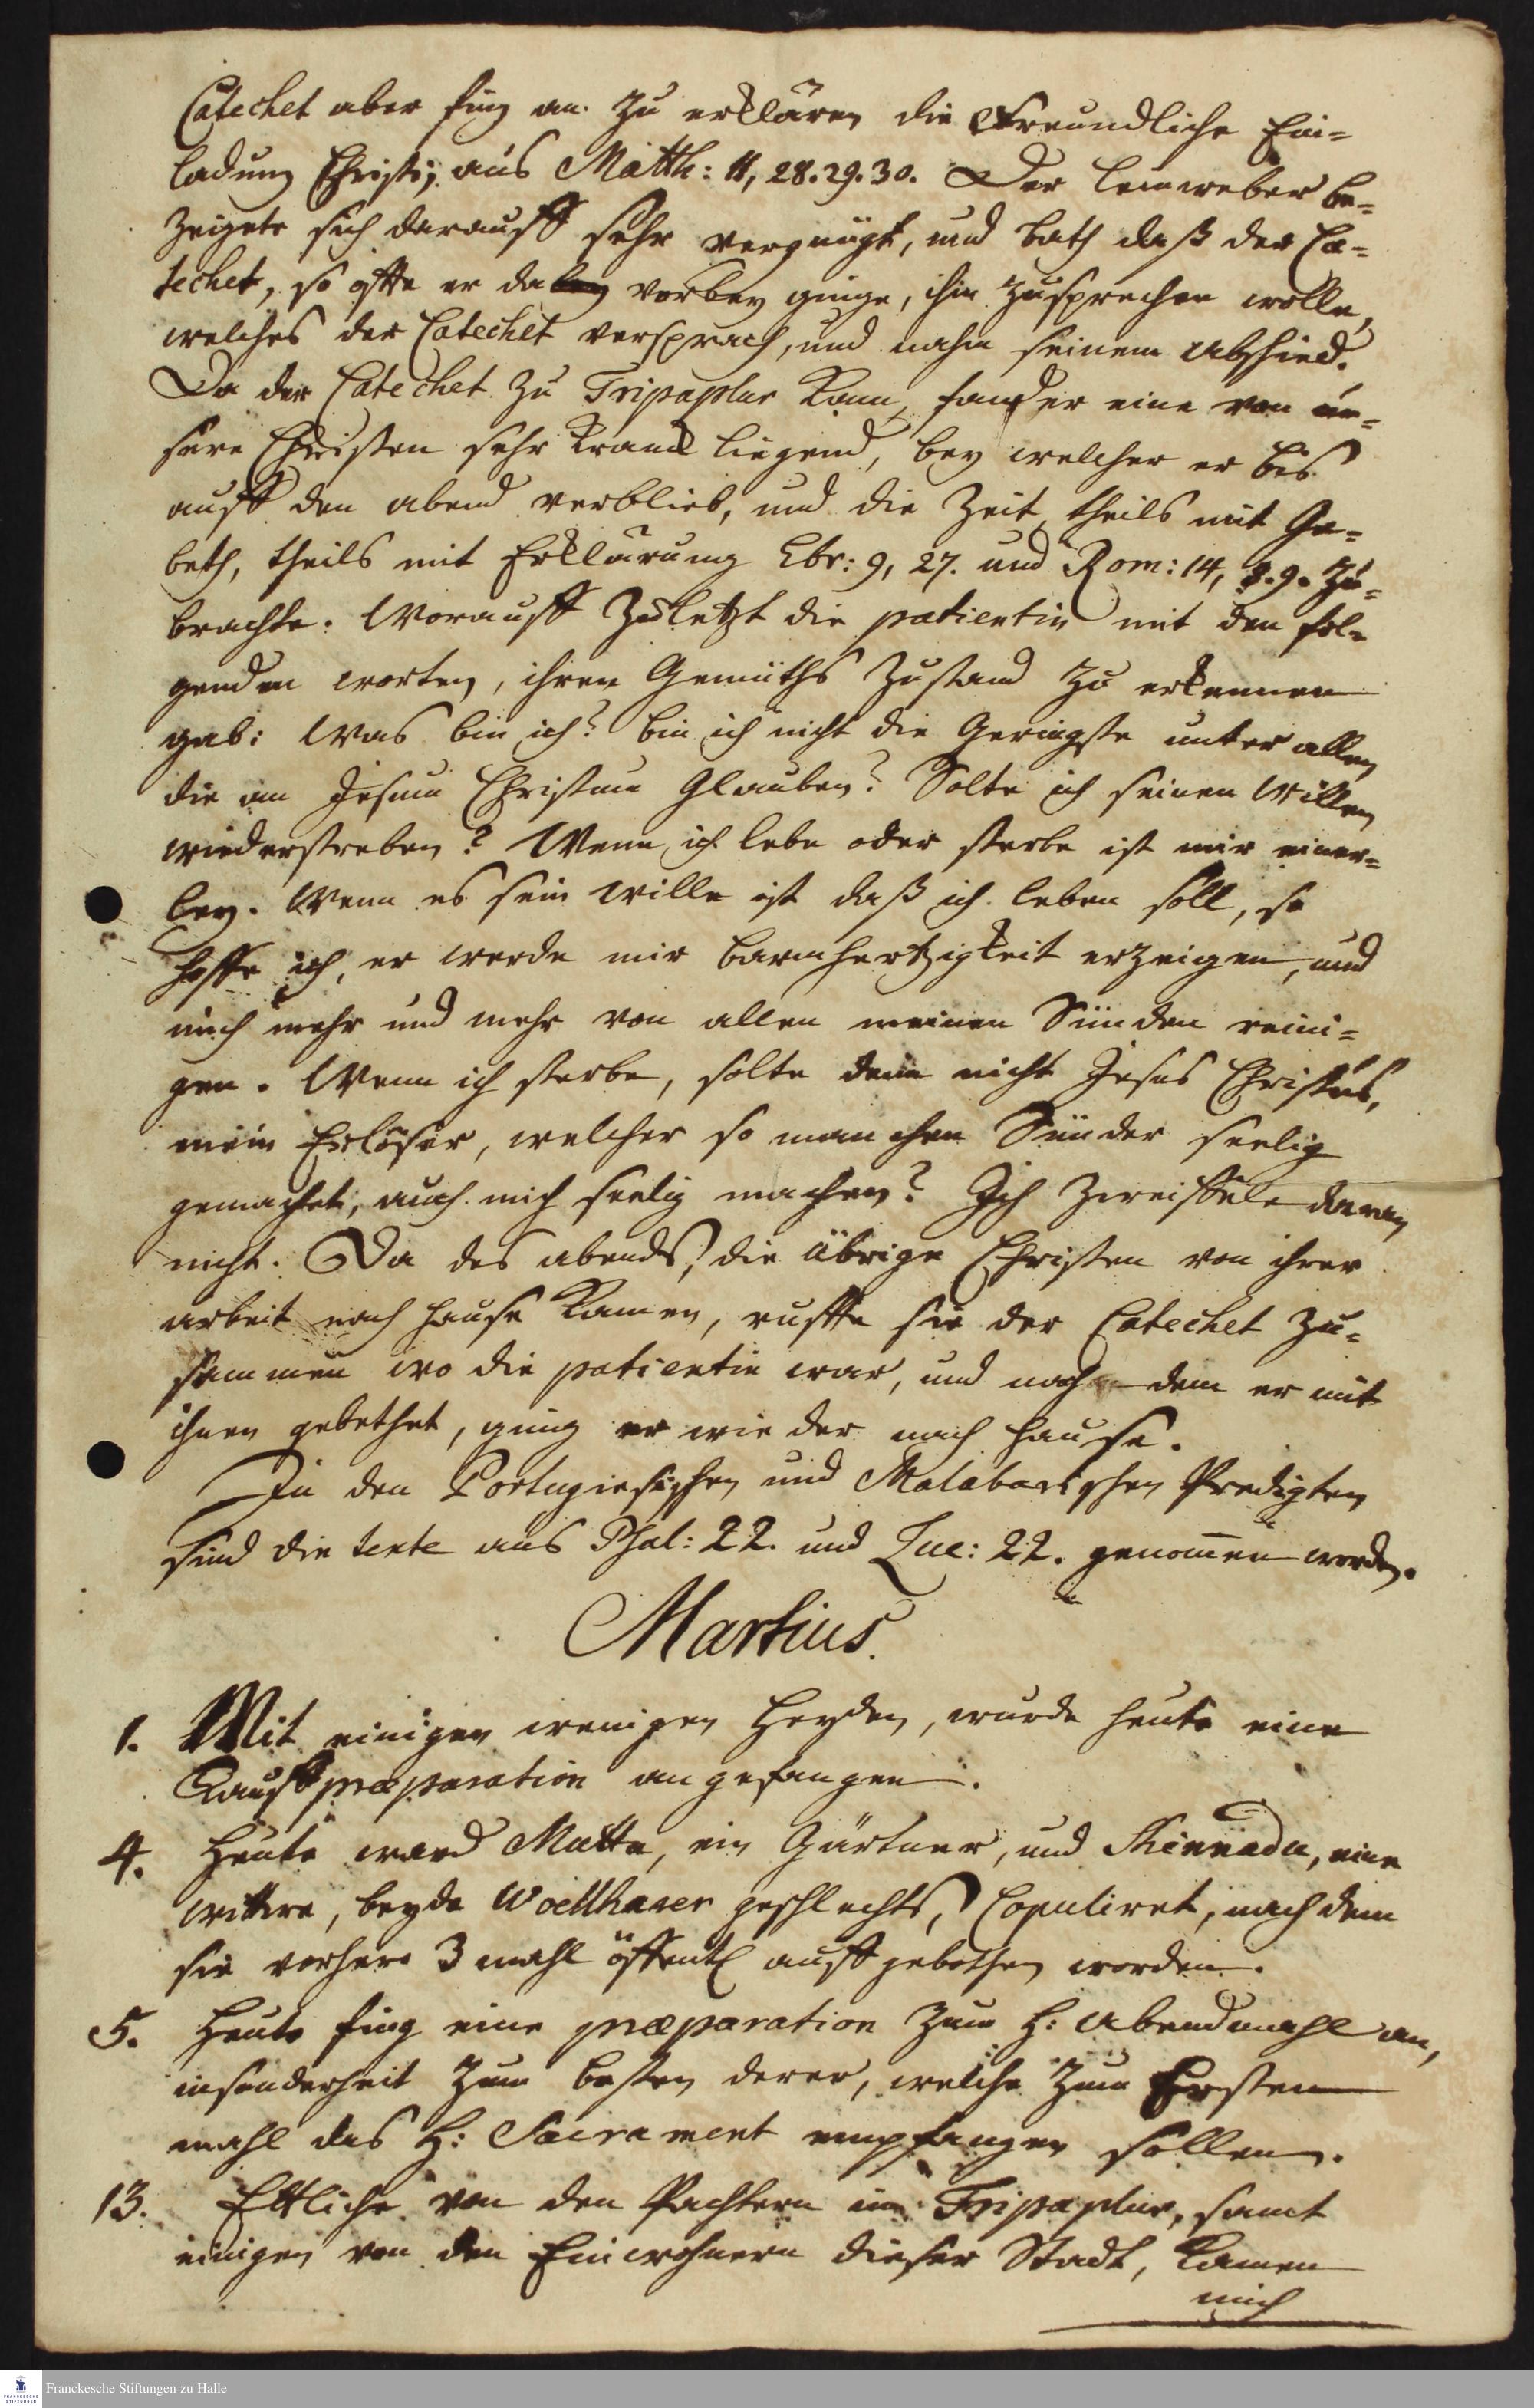 Catechet aber fing an zu erklären die Freundliche Ein=
ladung Christi, aus Matth: 11, 28.29.30. Der leinweber be=
zeigete sich darauff sehr vergnügt, und bath daß der Ca=
techet, so offte er da vorbey ginge, ihm zusprechen wolle,
welches der Catechet versprach, und nahm seinem Abschied.
Da der Catechet zu Tripaplur kam, fand er eine von un=
sere Christen sehr kranck liegend, bey welcher er bis
auff den abend verblieb, und die Zeit, theils mit Ge=
beth, theils mit Erklärung Ebr: 9, 27. und Rom: 14, 8.9. zu=
brachte. Worauff zuletzt die patientin mit den fol=
genden worten, ihren Gemüths Zustand zu erkennen
gab: Was bin ich? bin ich nicht die Geringste unter allen
die an Jesum Christum Glauben? Solte ich seinen Willen
wiederstreben? Wenn ich lebe oder sterbe ist mir einer=
ley. Wenn es sein wille ist daß ich leben soll, so
hoffe ich, er werde mir barmhertzigkeit erzeigen, und
mich mehr und mehr von allen meinen Sünden reini=
gen. Wenn ich sterbe, solte denn nicht Jesus Christus,
mein Erlöser, welcher so manchen Sünder seelig
gemachet, auch mich seelig machen? Ich zweiffele daran
nicht. Da des abends, die übrige Christen von ihrer
arbeit nach hause kamen, ruffte sie der Catechet zu=
sammen wo die patientin war, und nach dem er mit
ihnen gebethet, ging er wieder nach hause.
In den Portugiesischen und Malabarischen Predigten
sind die texte aus Psal: 22. und Luc: 22. genom̅en worden.
Martius.
1. Mit einigen wenigen Heyden, wurde heute eine
Tauff præparation angefangen.
4. Heute ward Mutta, ein Gärtner, und Skinnadu, eine
wittwe, beyde Woellhaver geschlechts, Copuliret, nach dem
sie vorhero 3 mahl öffentl auffgebothen worden.
5. Heute fing eine præparation zum H: Abendmahl an,
insonderheit zum besten derer, welche zum Ersten
mahl das H: Sacrament empfangen sollen.
13. Ettliche von den Pachtern in Tripaplur, samt
einigen von den Einwohnern dieser Stadt, kamen
mich
Franckesche Stiftungen zu Halle